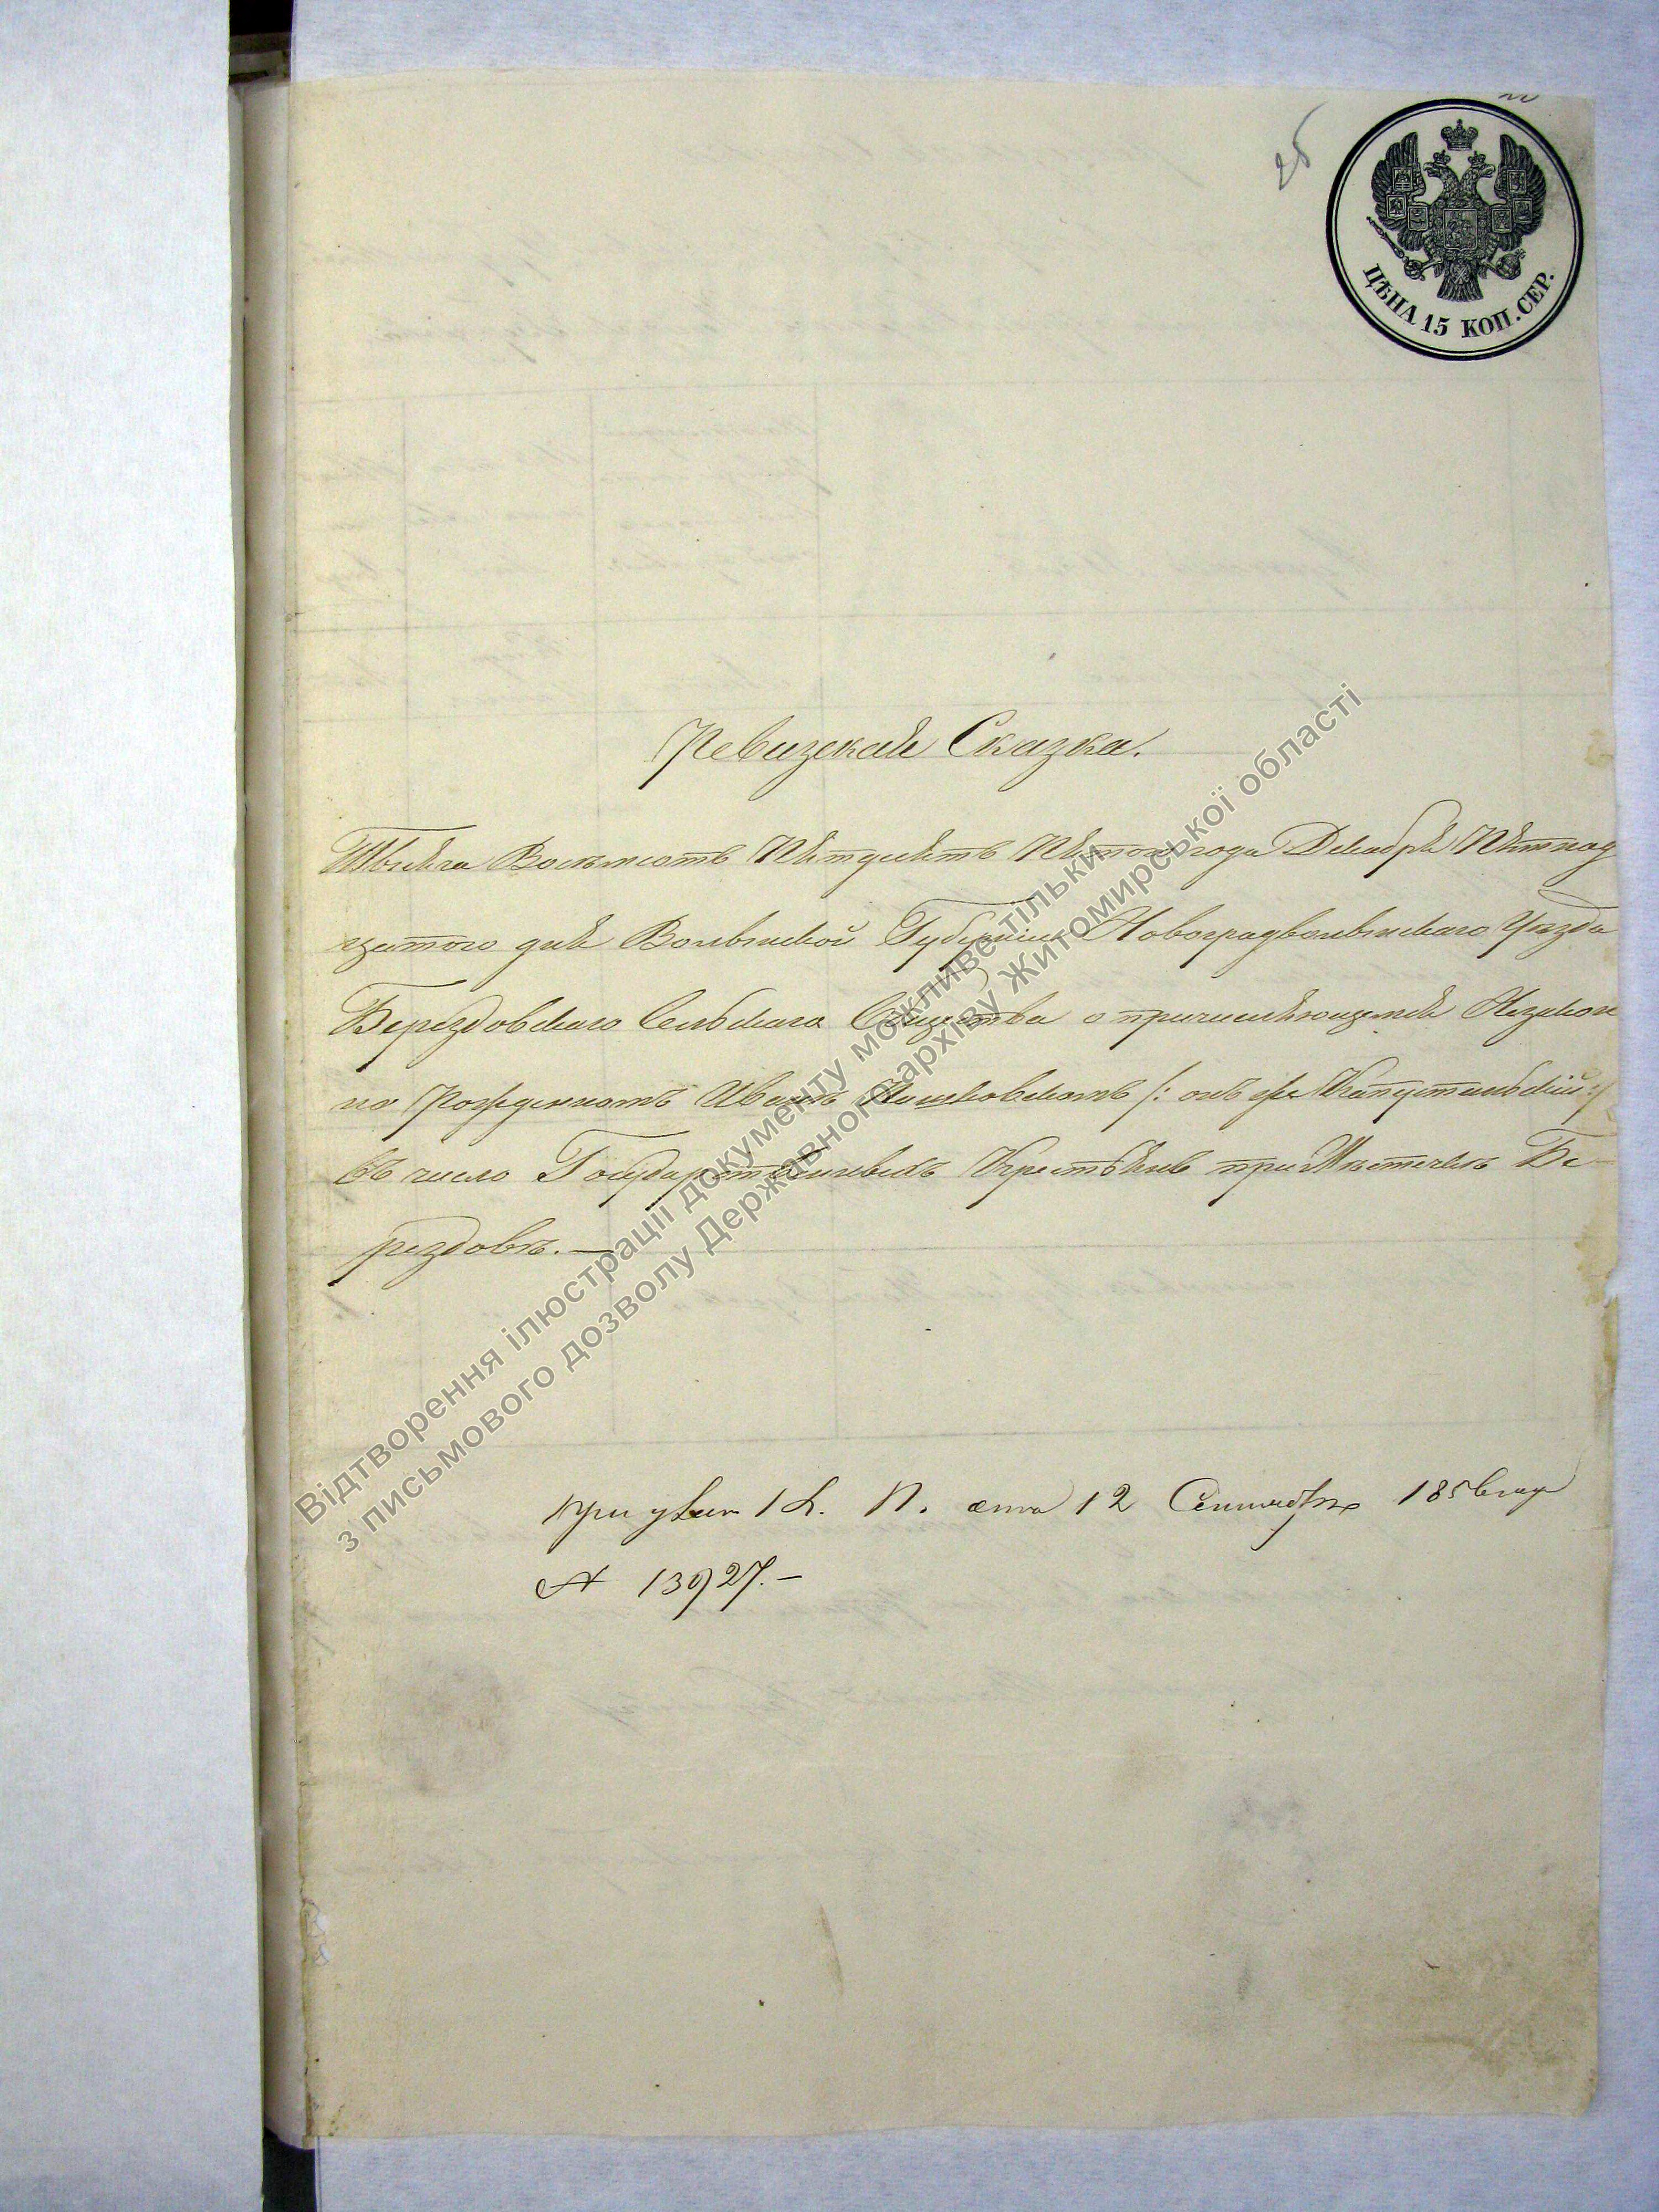 26
ЦѢНА 15 КОП. СЕР.
Ревизская Сказка.
Тысяча Восемьсотъ Пятдесятъ Пятого года Декабря Пятнад
цатого дня Волынской Губерніи Новоградволынскаго Уѣзда
Бердздовскаго Сельскаго Общества о причисляющемся Незакон
но Рожденномъ Иванѣ /: онъ же Капустинскій :/
въ число Государственныхъ Крестьянъ при Мѣстечкѣ Бе
рездовѣ. —
При указѣ К. П. отъ 12 Сентября 1856 года
№ 13927. —
Відтворення ілюстрації документу можливе тільки
з письмового дозволу Державного архіву Житомирської області